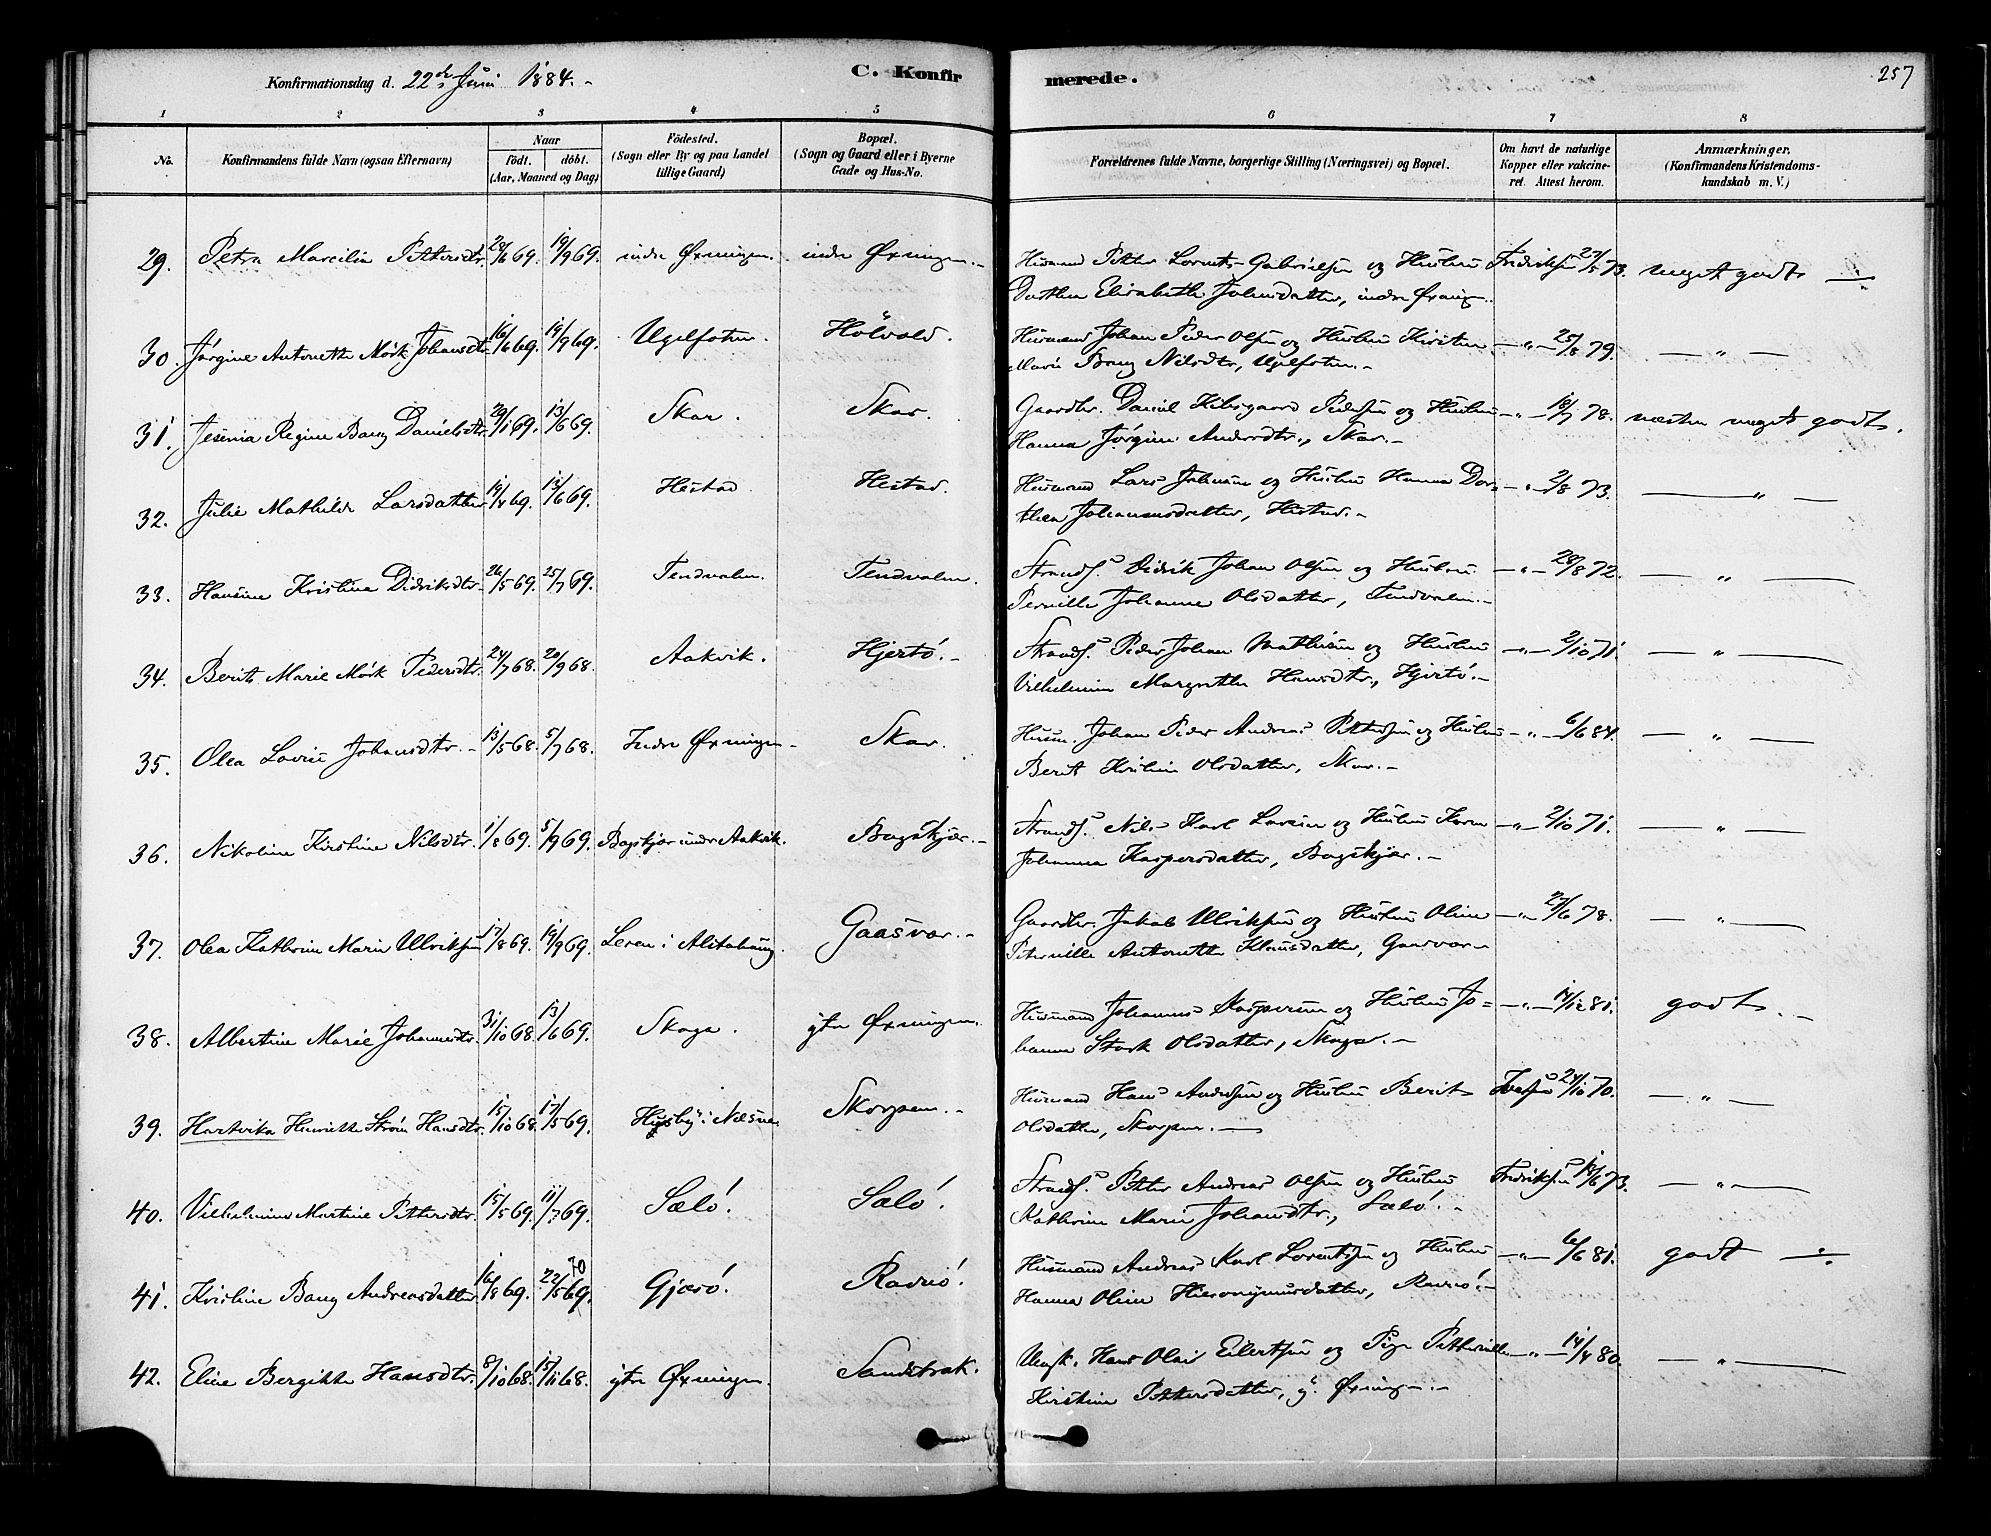 Konfirmationsdag d. 22de Juni 1884. -
C. Konfirmerede.
257
1 2 3 4 5 6 7 8
No.
Konfirmandens fulde Navn (ogsaa Efternavn)
Naar
født. døbt.
(Aar, Maaned og Dag)
Fødested.
(Sogn eller By og paa Landet
tillige Gaard)
Bopæl.
(Sogn og Gaard eller i Byerne
Gade og Hus-No.
Forældrenes fulde Navne, borgerlige Stilling (Næringsvei) og Bopæl.
Om havt de naturlige
Kopper eller vakcine-
ret. Attest herom.
Anmærkninger.
(Konfirmandens Kristendoms-
kundskab m. V.)
29. Petra Marcilie Pettersdtr. 28/6 69. 19/9 69. indre Øxningen. indre Øxningen. - Husmand Petter Lornts Gabrielsen og Hustru Fredriksen 27/5 73. meget godt —
Dorthea Elisabeth Johnsdatter, indre Øxning.
30. Jørgine Antonette Mørk Johansdtr. 16/6 69. 19/9 69. Ugelfoten. Hølvold. Husmand Johan Peder Olsen og Hustru Kirsten — " — 25/8 79. — " —
Marie Bang Nilsdtr, Ugelfoten. -
31. Jesenia Regine Bang Danielsdtr. 29/1 69. 13/6 69. Skar. Skar. Gaardbr. Daniel Kilsgaard Pedersen og Hustru — " — 18/7 78. næsten meget godt.
Hanna Jørgine Andersdtr., Skar. -
32. Julie Mathilde Larsdatter 19/4 69. 13/6 69. Hestad Hestad. Husmand Lars Johnsen og Hustru Hanna Dor= — " — 2/8 73. — " —
thea Johannesdatter, Hestad. -
33. Hansine Kristina Didriksdtr. 26/5 69. 25/7 69. Tendvalen. Tendvalen. Strands. Didrik Johan Olsen og Hustru — " — 28/8 72. — " —
Pernille Johanne Olsdatter, Tendvalen. -
34. Berit Marie Mørk Pedersdtr. 24/7 68. 20/9 68. Aakvik. Hjertø. - Strands. Peder Johan Mathisen og Hustru — " — 2/10 71. — " —
Vilhelmine Margrethe Hansdtr., Hjertø. -
35. Olea Lovise Johansdtr. - 13/5 68. 5/7 68. Indre Øxningen - Skar. Husm. Johan Peder Andreas Pettersen og Hustru — " — 6/6 84. — " —
Berit Kristine Olsdatter, Skar. -
36. Nikoline Kirstine Nilsdtr. 1/8 69. 5/9 69. Bagskjær indre Aakvik. Bagskjær. - Strands. Nils Karl Larsen og Hustru Karen — " — 2/10 71. — " —
Johanna Kaspersdatter, Bagskjær. -
37. Olea Kathrine Marie Ulriksen 17/8 69. 19/9 69. Leren i Alstahaug. Gaasvær. - Gaardbr. Jakob Ulriksen og Hustru Oline — " — 27/6 78. — " —
Peternille Antonette Klausdatter, Gaasvær -
38. Albertine Marie Johannesdtr. 31/10 68. 13/6 69. Skaga. ytre Øxningen. Husmand Johannes Kaspersen og Hustru Jo= — " — 14/12 81. godt. -
hanna Stork Olsdatter, Skaga. -
39. Hartvika Henrikke Strøm Hansdtr. 15/10 68. 17/5 69. Husby i Næsne. Skorpen. - Husmand Hans Andersen og Hustru Berit 24/10 70. — " —
Olsdatter, Skorpen. —
40. Vilhelmine Martine Pettersdtr. 15/5 69. 11/7 69. Sælø. Sælø. Strands. Petter Andreas Olsen og Hustru Fredriksen 18/6 73. — " —
Kathrine Marie Johansdtr., Sælø. -
41. Kristine Bang Andreasdatter 16/8 69. 22/5 69. 70 Gjæsø. Ravnø. Husmand Andreas Karl Lorentsen og Hustru — " — 6/6 81. godt —
Hanna Oline Hieronymusdatter, Ravnø. -
42. Eline Bergitte Hansdtr. 8/10 68. 15/11 68. ytre Øxningen. Sandstrak. Ungk. Hans Olai Eilertsen og Pige Petternille — " — 14/4 80. — " —
Kirstine Pettersdatter, y. Øxningen. -